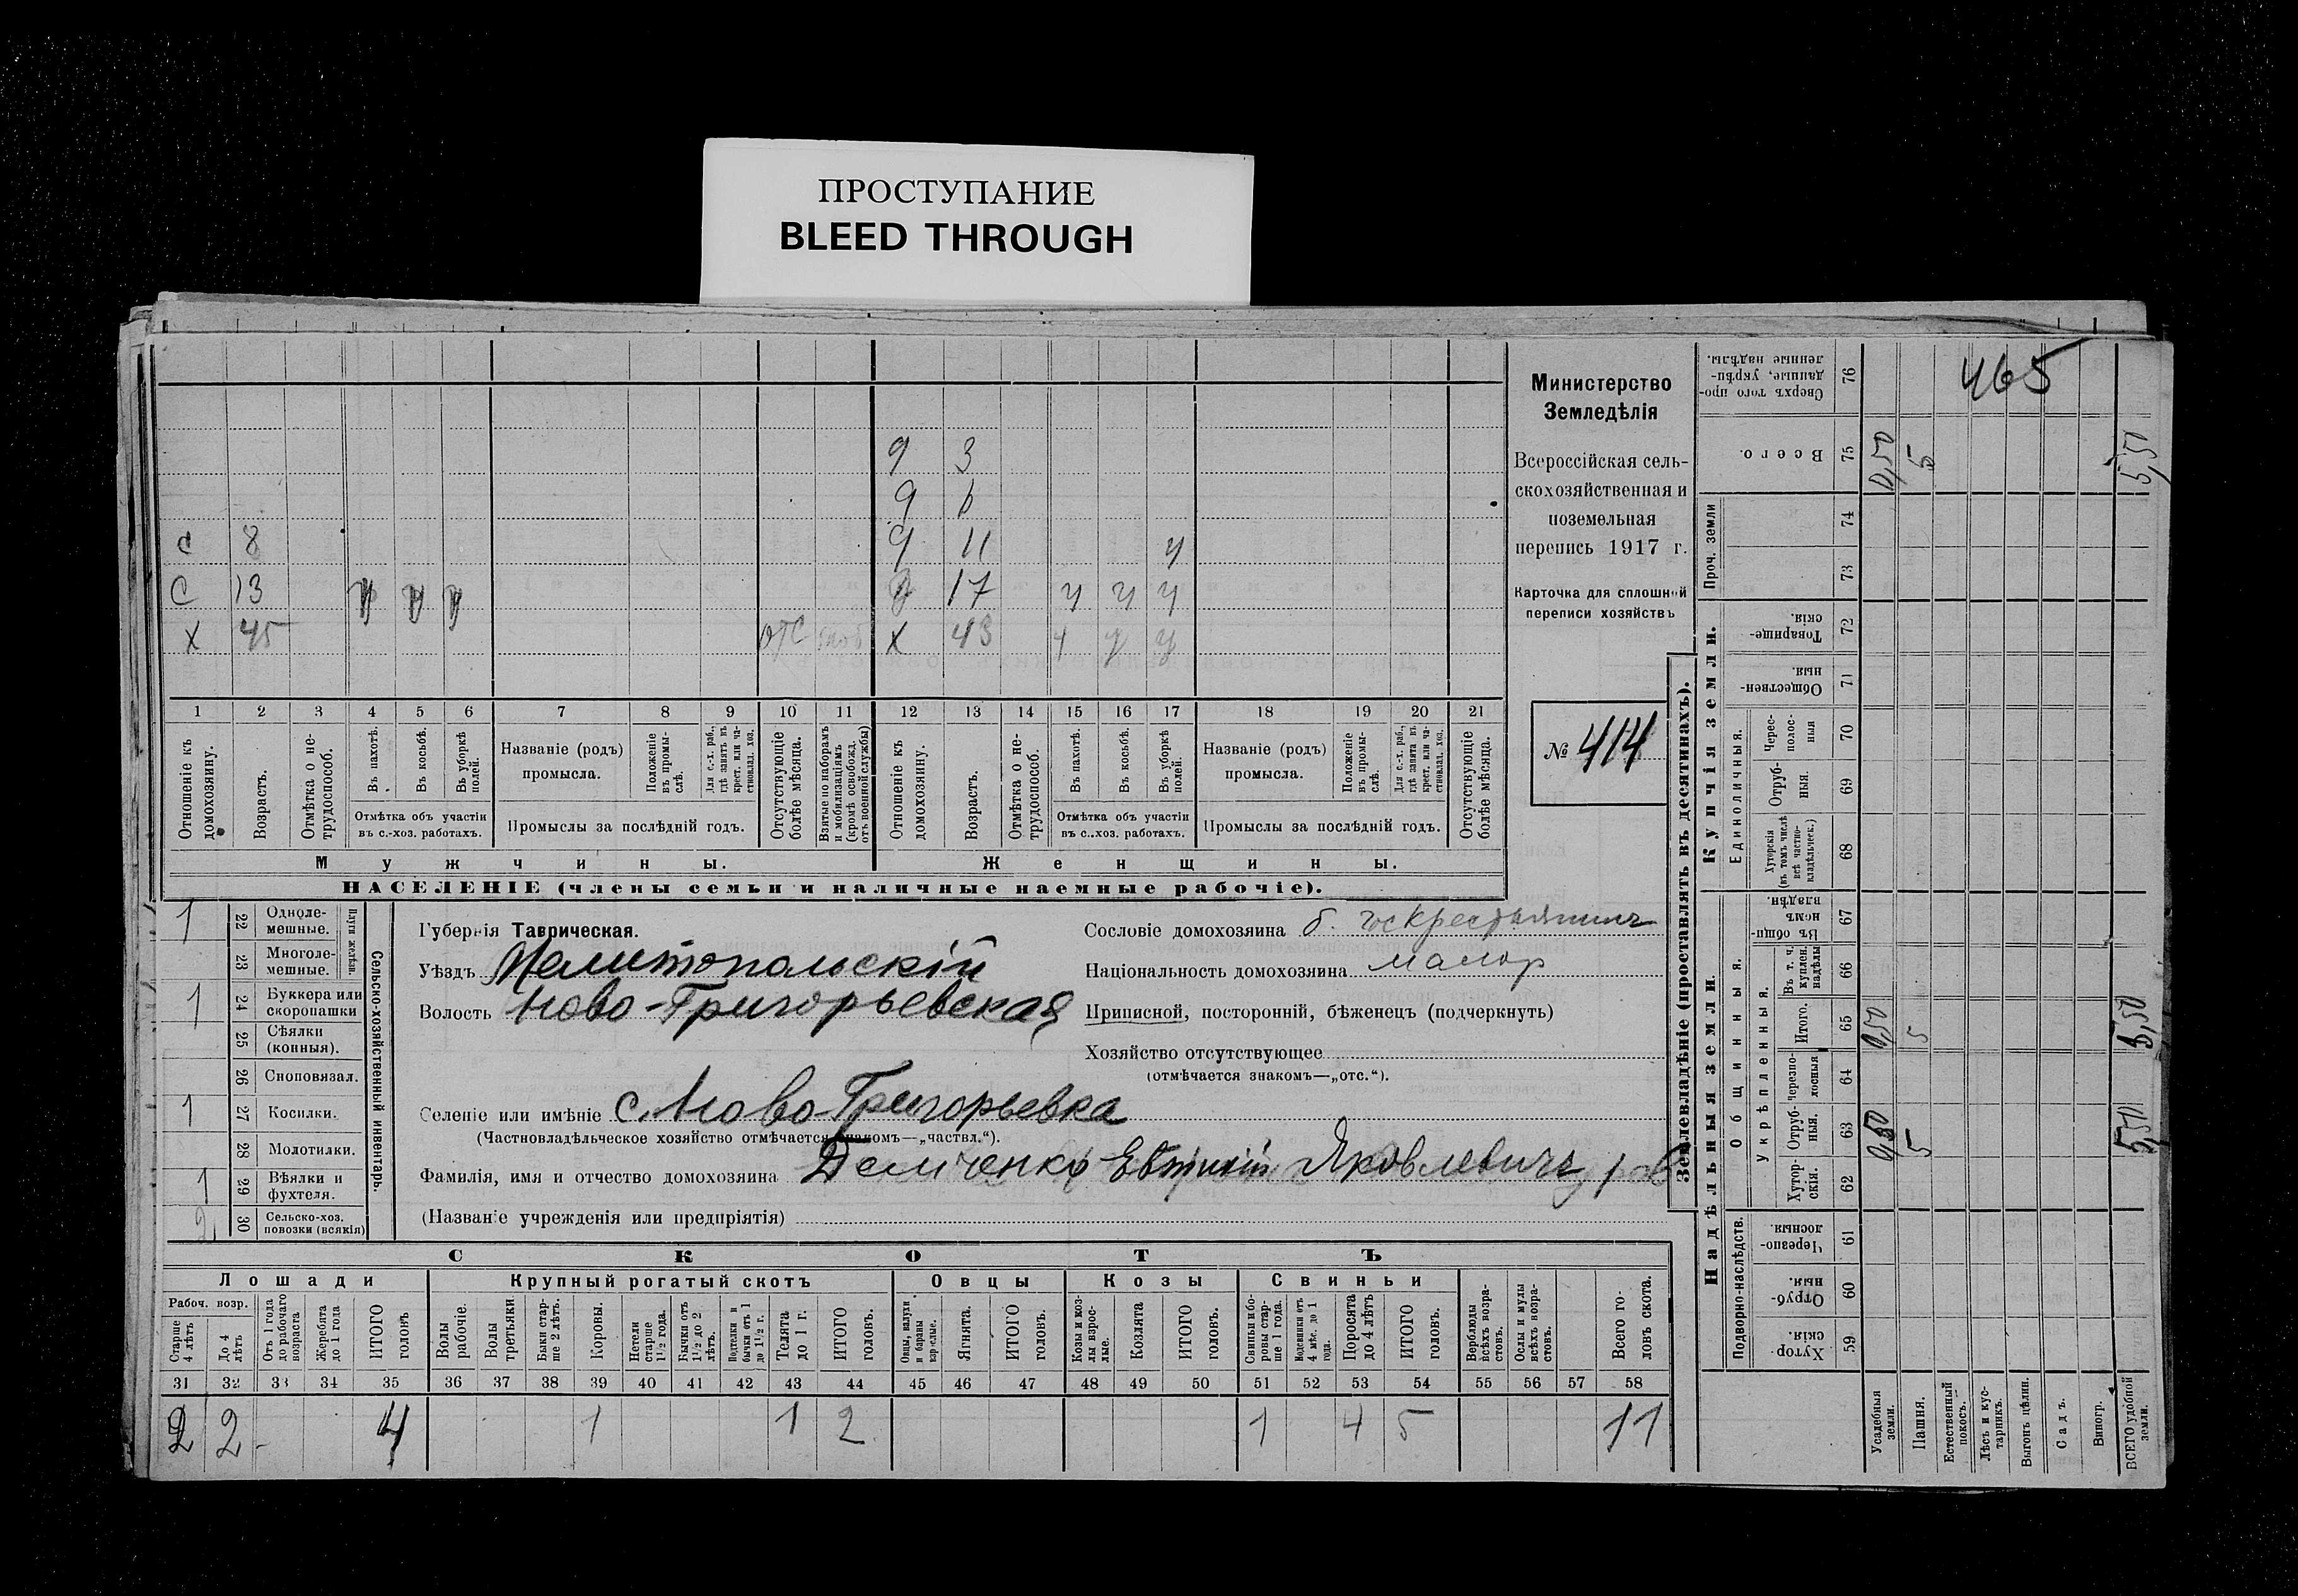 ПРОСТУПАНИЕ
BLEED THROUGH
9 3
9
с 8 9 11 ч
с 13 17 ч ч ч
х 45 отс моб х 43 ч ч ч
1 2 3 4 5 6 7 8 9 10 11 12 13 14 15 16 17 18 19 20 21
Отношеніе къ домохозяину.
Возрастъ.
Отмѣтка о не-трудоспособ.
Въ пахотѣ.
Въ косьбѣ.
Въ уборкѣ полей.
Отмѣтка объ участіи въ с.-хоз. работахъ.
Названіе (родъ) промысла.
Положеніе въ промы-слѣ.
Для с.-х. раб., гдѣ занятъ въ крест. или ча-стновлад. хоз.
Промыслы за послѣдній годъ.
Отсутствующіе болѣе мѣсяца.
Взятые по наборамъ и мобилизаціямъ (кромѣ освобожд. отъ военной службы)
Отношеніе къ домохозяину.
Возрастъ.
Отмѣтка о не-трудоспособ.
Въ пахотѣ.
Въ косьбѣ.
Въ уборкѣ полей.
Отмѣтка объ участіи въ с..хоз. работахъ.
Названіе (родъ) промысла.
Положеніе въ промы-слѣ.
Для с.-х. раб., гдѣ занята въ крест. или ча-стновлад. хоз.
Промыслы за послѣдній годъ.
Отсутствующіе болѣе мѣсяца.
Мужчины.
Женщины.
НАСЕЛЕНІЕ (члены семьи и наличные наемные рабочіе).
Министерство
Земледѣлія
Всероссійская сель-
скохозяйственная и
поземельная
перепись 1917 г.
Карточка для сплошной
переписи хозяйствъ
№ 414
Сельско-хозяйственный инвентарь.
Плуги желѣзн.
1 22 Одноле-мешные.
23 Многоле-мешные.
1 24 Буккера или скоропашки
25 Сѣялки (конныя).
26 Сноповязал.
1 27 Косилки.
28 Молотилки.
1 29 Вѣялки и фухтеля.
2 30 Сельско-хоз. повозки (всякія)
Губернія Таврическая.
Уѣздъ Мелитопольскій
Волость Ново-Григорьевская
Селеніе или имѣніе с. Ново-Григорьевка
(Частновладѣльческое хозяйство отмѣчается знакомъ—„частвл.“).
Фамилія, имя и отчество домохозяина Демченко Евтихій Яковлевичъ
(Названіе учрежденія или предпріятія)
Сословіе домохозяина б. гос крестьянинъ
Національность домохозяина малор
Приписной, посторонній, бѣженецъ (подчеркнуть)
Хозяйство отсутствующее
(отмѣчается знакомъ—„отс.“).
СКОТЪ
Лошади
Рабоч. возр.
Старше 4 лѣтъ
До 4 лѣтъ
Отъ 1 года до рабочаго возраста
Жеребята до 1 года
ИТОГО головъ
Крупный рогатый скотъ
Волы рабочіе.
Волы третьяки
Быки стар-ше 2 лѣтъ.
Коровы.
Нетели старше 1½ года.
Бычки отъ 1½ до 2 лѣтъ.
Подтелки и бычки отъ 1 до 1½ г.
Телята до 1 г.
ИТОГО головъ.
Овцы
Овцы, валухи и бараны взрослые.
Ягнята.
ИТОГО головъ.
Козы
Козы и коз-лы взрос-лые.
Козлята
ИТОГО головъ.
Свиньи
Свиньи и бо-ровы стар-ше 1 года.
Подсвинки отъ 4 мѣс. до 1 года.
Поросята до 4 лѣтъ
ИТОГО головъ.
Верблюды всѣхъ возра-стовъ.
Ослы и мулы всѣхъ возра-стовъ.
Всего го-ловъ скота.
31 32 33 34 35 36 37 38 39 40 41 42 43 44 45 46 47 48 49 50 51 52 53 54 55 56 57 58
2 2 4 1 1 2 1 4 5 11
Землевладѣніе (проставлять въ десятинахъ).
465
Сверхъ того про-данные, укрѣп-ленные надѣлы. 76
Всего. 75 0,50 5 5,50
Проч. земли 74 73
Купчія земли.
Товарище-скія. 72
Обществен-ныя. 71
Единоличныя.
Черес-полос-ныя 70
Отруб-ныя. 69
Хуторскія (въ томъ числѣ всѣ частно-владѣльческ.) 68
Надѣльныя земли.
Общинныя.
Въ общи-номъ владѣн. 67
Укрѣпленныя.
Въ т. ч. куплен. надѣлы 66
Итого. 65 0,50 5 5,50
Черезпо-лосныя 64
Отруб-ныя. 63 0,50 5 5,50
Хутор-скія. 62
Подворно-наслѣдств.
Черезпо-лосныя. 61
Отруб-ныя. 60
Хутор-скія. 59
Усадебныя земли.
Пашня.
Естественный покосъ.
Лѣсъ и кус-тарникъ.
Выгонъ цѣлин.
Садъ.
Виногр.
ВСЕГО удобной земли.